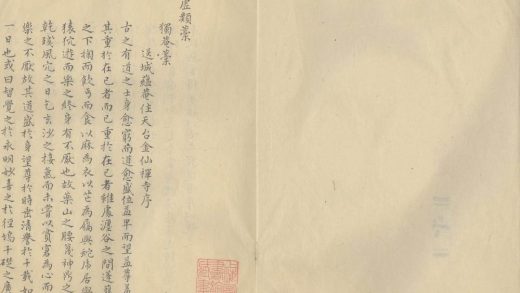 虛類藁
獨菴藁
送城蘊菴住天台金仙禪寺序
古之有道之士身愈窮而道愈盛位益卑而望益尊蓋
其重於在己者而已重於在己者雖處巖谷之間蓬
之下掬而飲丐而食以麻為衣以芒為屩與蛇虎居與
猿狖遊而樂之終身有不厭也故藥山之腰篾神之
乾風穴之日乞玄沙之而未嘗以貧窶為心而
樂之不厭故其道盛於身望尊於時垂清譽於千載如
一日也或曰智覺之於永明妙喜之於徑塢千礎之廣